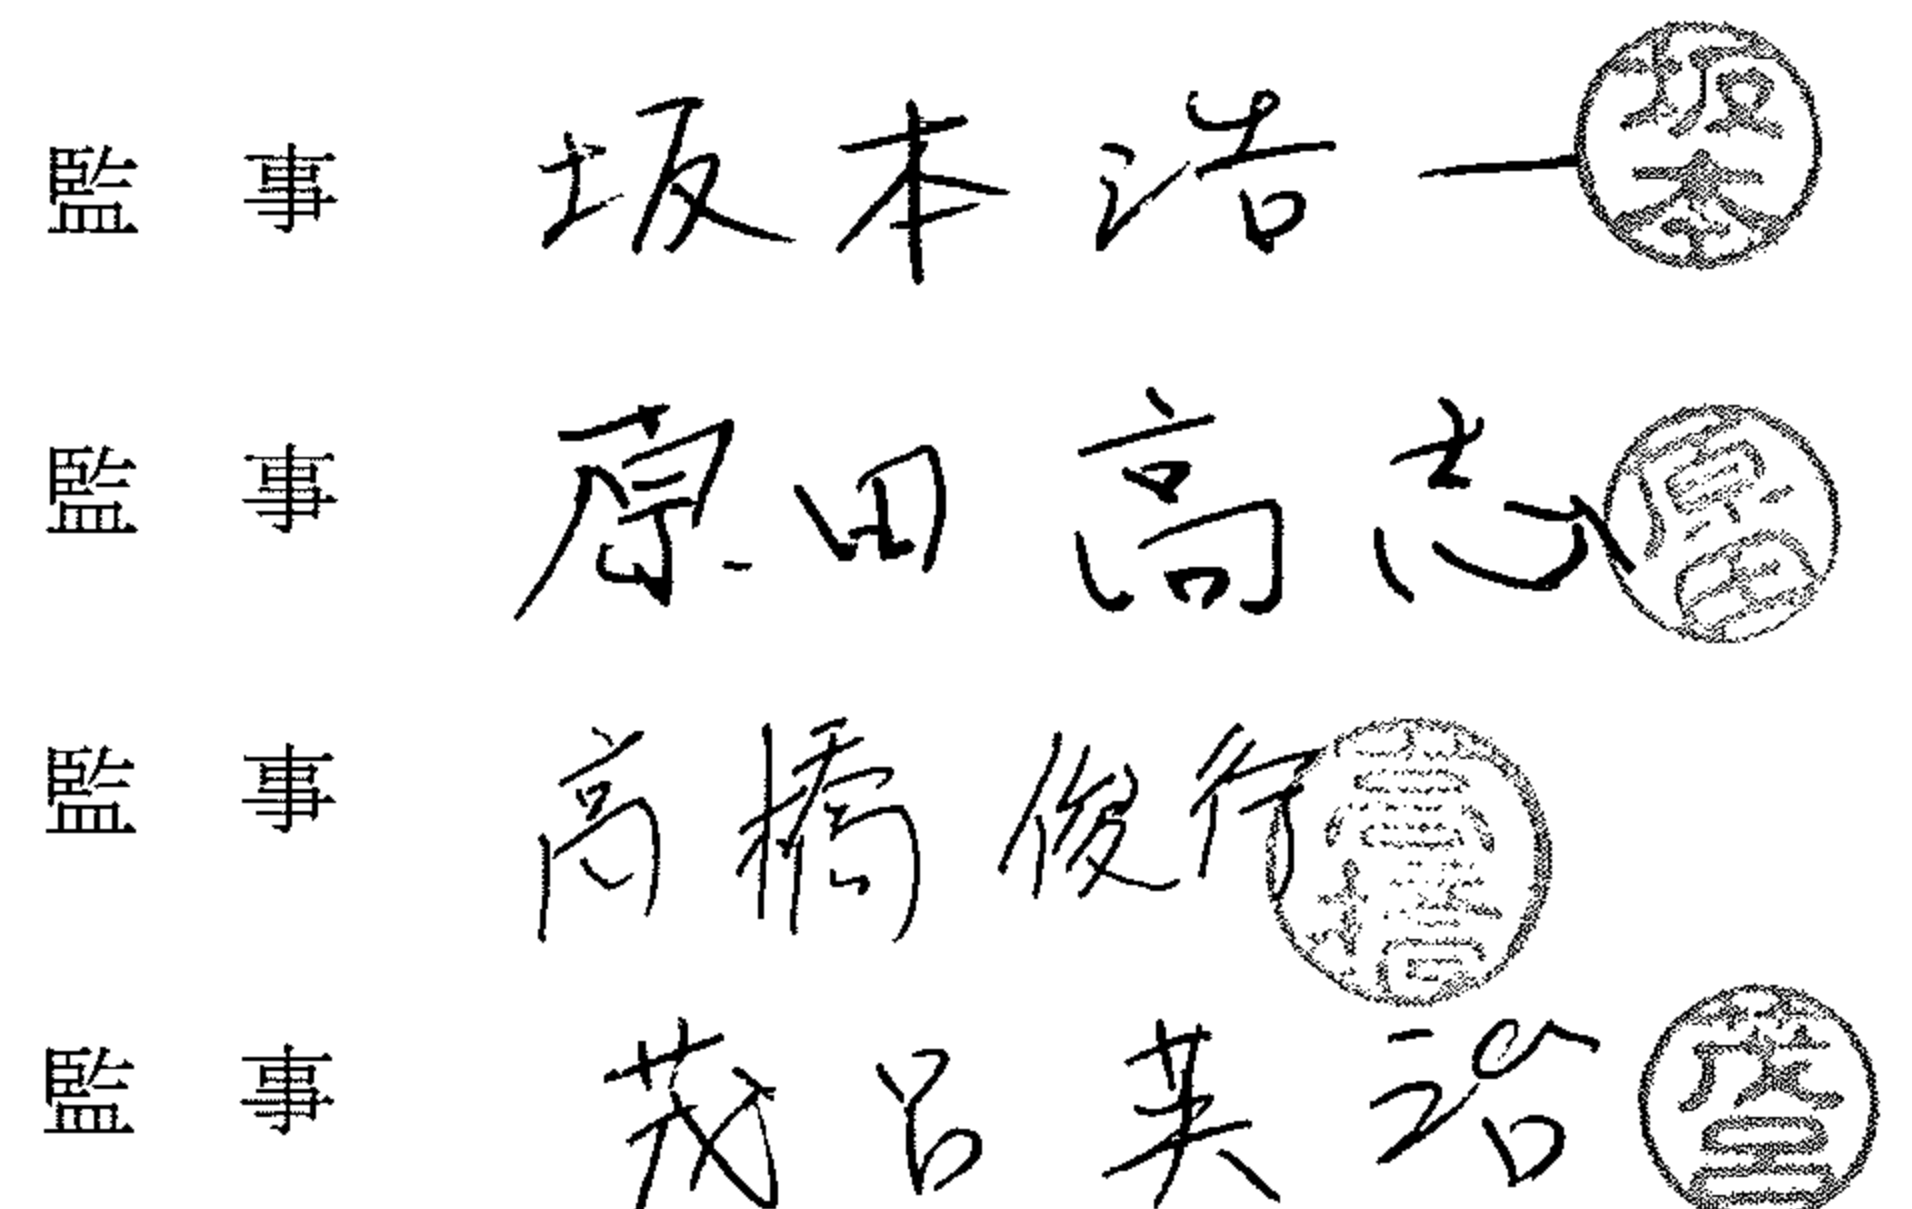 監事 坂本浩一 坂本
監事 原田高志 原田
監事 高橋俊行 高橋
監事 茂呂英治 茂呂